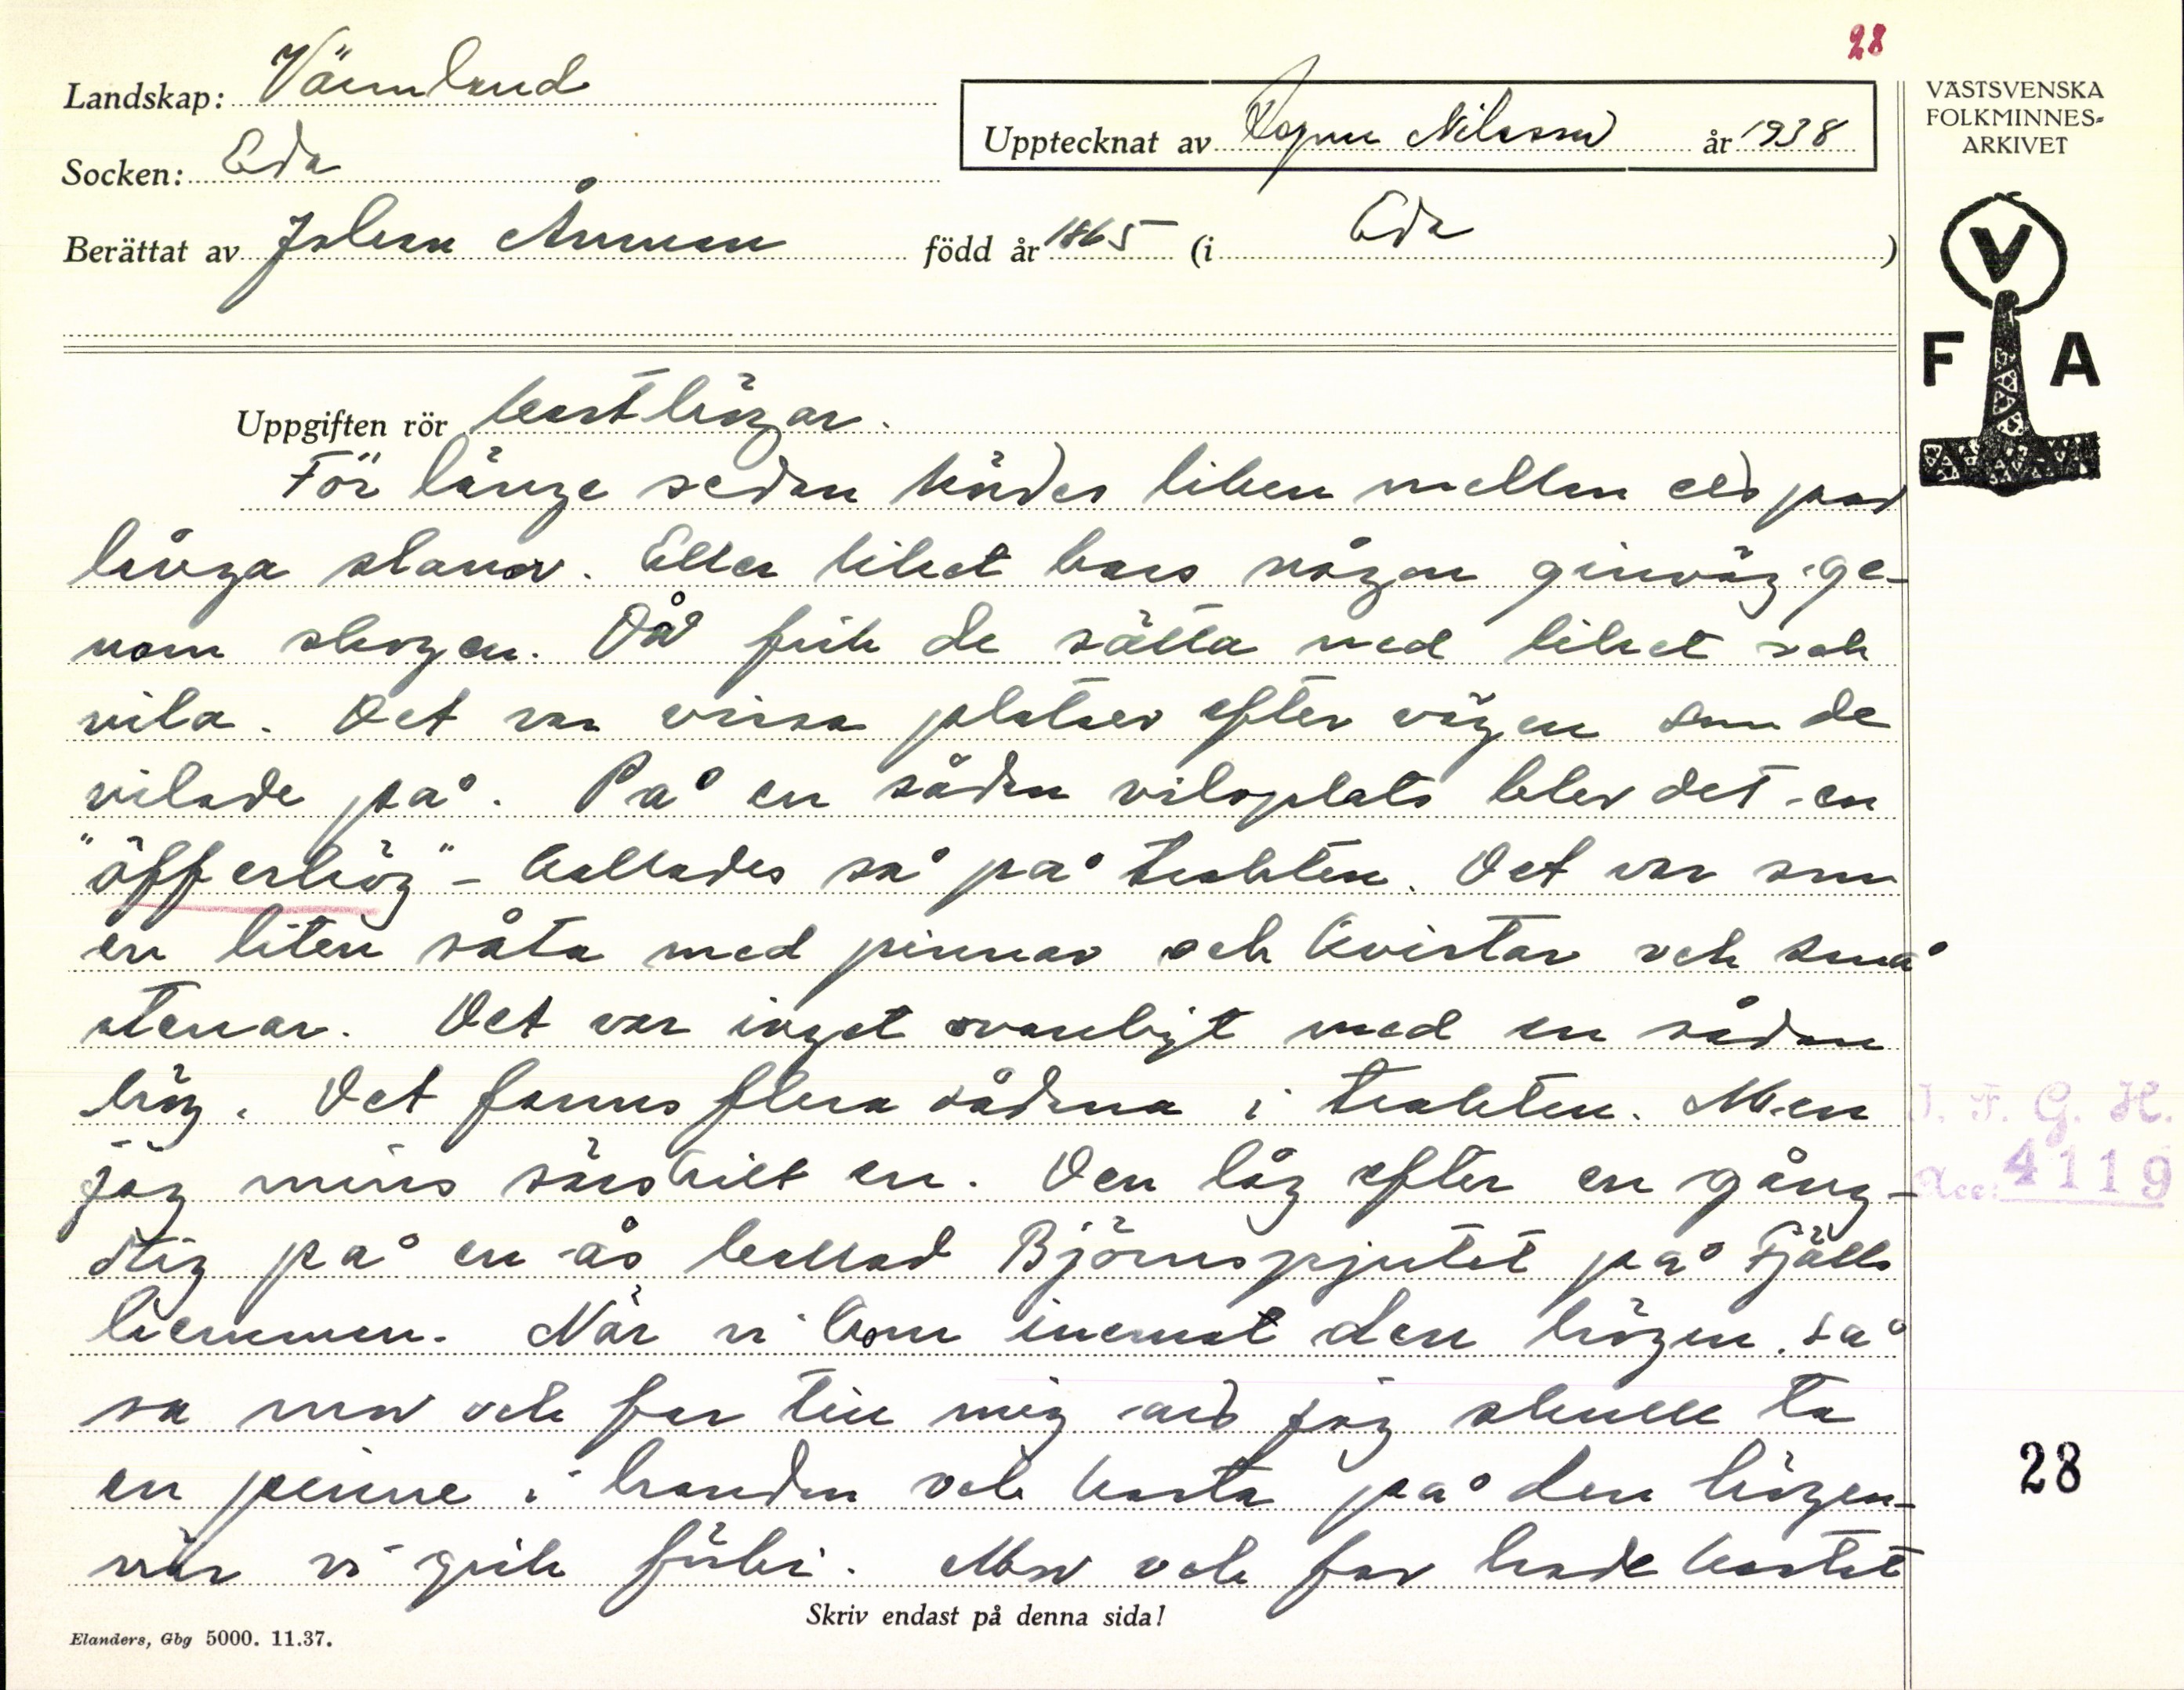 28
Landskap: Värmland
Upptecknat av Ragnar Nilsson år 1938
VÄSTSVENSKA
FOLKMINNES=
ARKIVET
Socken: Eda
Berättat av Johan Ånman född år 1865 (i Eda)
V
F A
Uppgiften rör kasthögar.
För länge sedan hades liken mellan ett par
långa slanor. Eller liket bars någon ginväg ge-
nom skogen. Då fick de sätta ned liket och
vila. Det var vissa platser efter vägen som de
vilade på. På en sådan viloplats blev det en
"öfferhög" - kallades så på trakten. Det var som
en liten såta med pinnar och kvistar och små
stenar. Det var inget ovanligt med en sådan
hög. Det fanns flera sådana i trakten. Men
jag minns särskilt en. Den låg efter en gång-
stig på en ås kallad Björnspjutet på Fjälls
hemmen. När vi kom inemot den högen så
sa mor och far till mig att jag skulle ta
en pinne i handen och kasta på den högen
när vi gick förbi. Mor och far hade kastat
J. F. G. H.
Acc: 4119
28
Skriv endast på denna sida!
Elanders, Gbg 5000. 11.37.